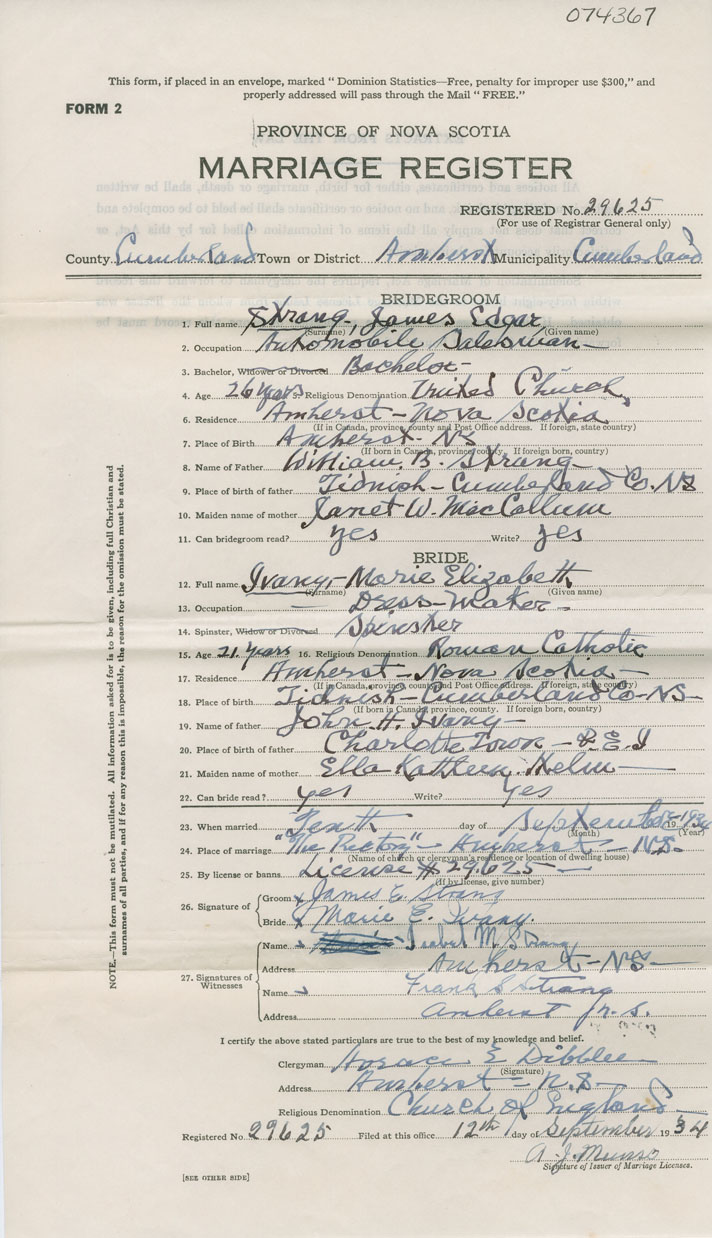 074367
This form, if placed in an envelope, marked " Dominion Statistics—Free, penalty for improper use $300," and
properly addressed will pass through the Mail " FREE."
FORM 2
PROVINCE OF NOVA SCOTIA
MARRIAGE REGISTER
REGISTERED No. 29625
(For use of Registrar General only)
County Cumberland Town or District Amherst Municipality Cumberland
BRIDEGROOM
1. Full name Strang, James Edgar
(Surname) (Given name)
2. Occupation Automobile Salesman
3. Bachelor, Widower or Divorced Bachelor
4. Age 26 years 5. Religious Denomination United Church
6. Residence Amherst - Nova Scotia
(If in Canada, province, county and Post Office address. If foreign, state country)
7. Place of Birth Amherst - NS
(If born in Canada, province, county. If foreign born, country)
8. Name of Father William. B. Strang
9. Place of birth of father Tidnish - Cumberland Co. NS
10. Maiden name of mother Janet W. MacCallum
11. Can bridegroom read? yes Write? yes
BRIDE
12. Full name Ivany, - Marie Elizabeth
(Surname) (Given name)
13. Occupation — Dress-Maker -
14. Spinster, Widow or Divorced Spinster
15. Age 21 years 16. Religious Denomination Roman Catholic
17. Residence Amherst - Nova Scotia -
(If in Canada, province, county and Post Office address. If foreign, state country)
18. Place of birth Tidnish - Cumberland Co - NS -
(If born in Canada, province, county. If foreign born, country)
19. Name of father John H. Ivany -
20. Place of birth of father Charlotte Town - P.E.I
21. Maiden name of mother Ella Kathleen Helm
22. Can bride read? yes Write? yes
23. When married Tenth day of September 1934
(Month) (Year)
24. Place of marriage "The Rectory" - Amherst - N.S.
(Name of church or clergyman's residence or location of dwelling house)
25. By license or banns License # 29.625
(If by license, give number)
26. Signature of
Groom x James E Strang
Bride x Marie E. Ivany.
27. Signatures of Witnesses
Name Isabel M. Strang
Address Amherst - NS
Name Frank S Strang
Address Amherst N. S.
I certify the above stated particulars are true to the best of my knowledge and belief.
Clergyman Horace E Dibblee
(Signature)
Address Amherst - N.S
Religious Denomination Church of England
Registered No. 29625 Filed at this office 12th day of September 1934
A. J. Munro
Signature of Issuer of Marriage Licenses.
[SEE OTHER SIDE]
NOTE.—This form must not be mutilated. All information asked for is to be given, including full Christian and
surnames of all parties, and if for any reason this is impossible, the reason for the omission must be stated.